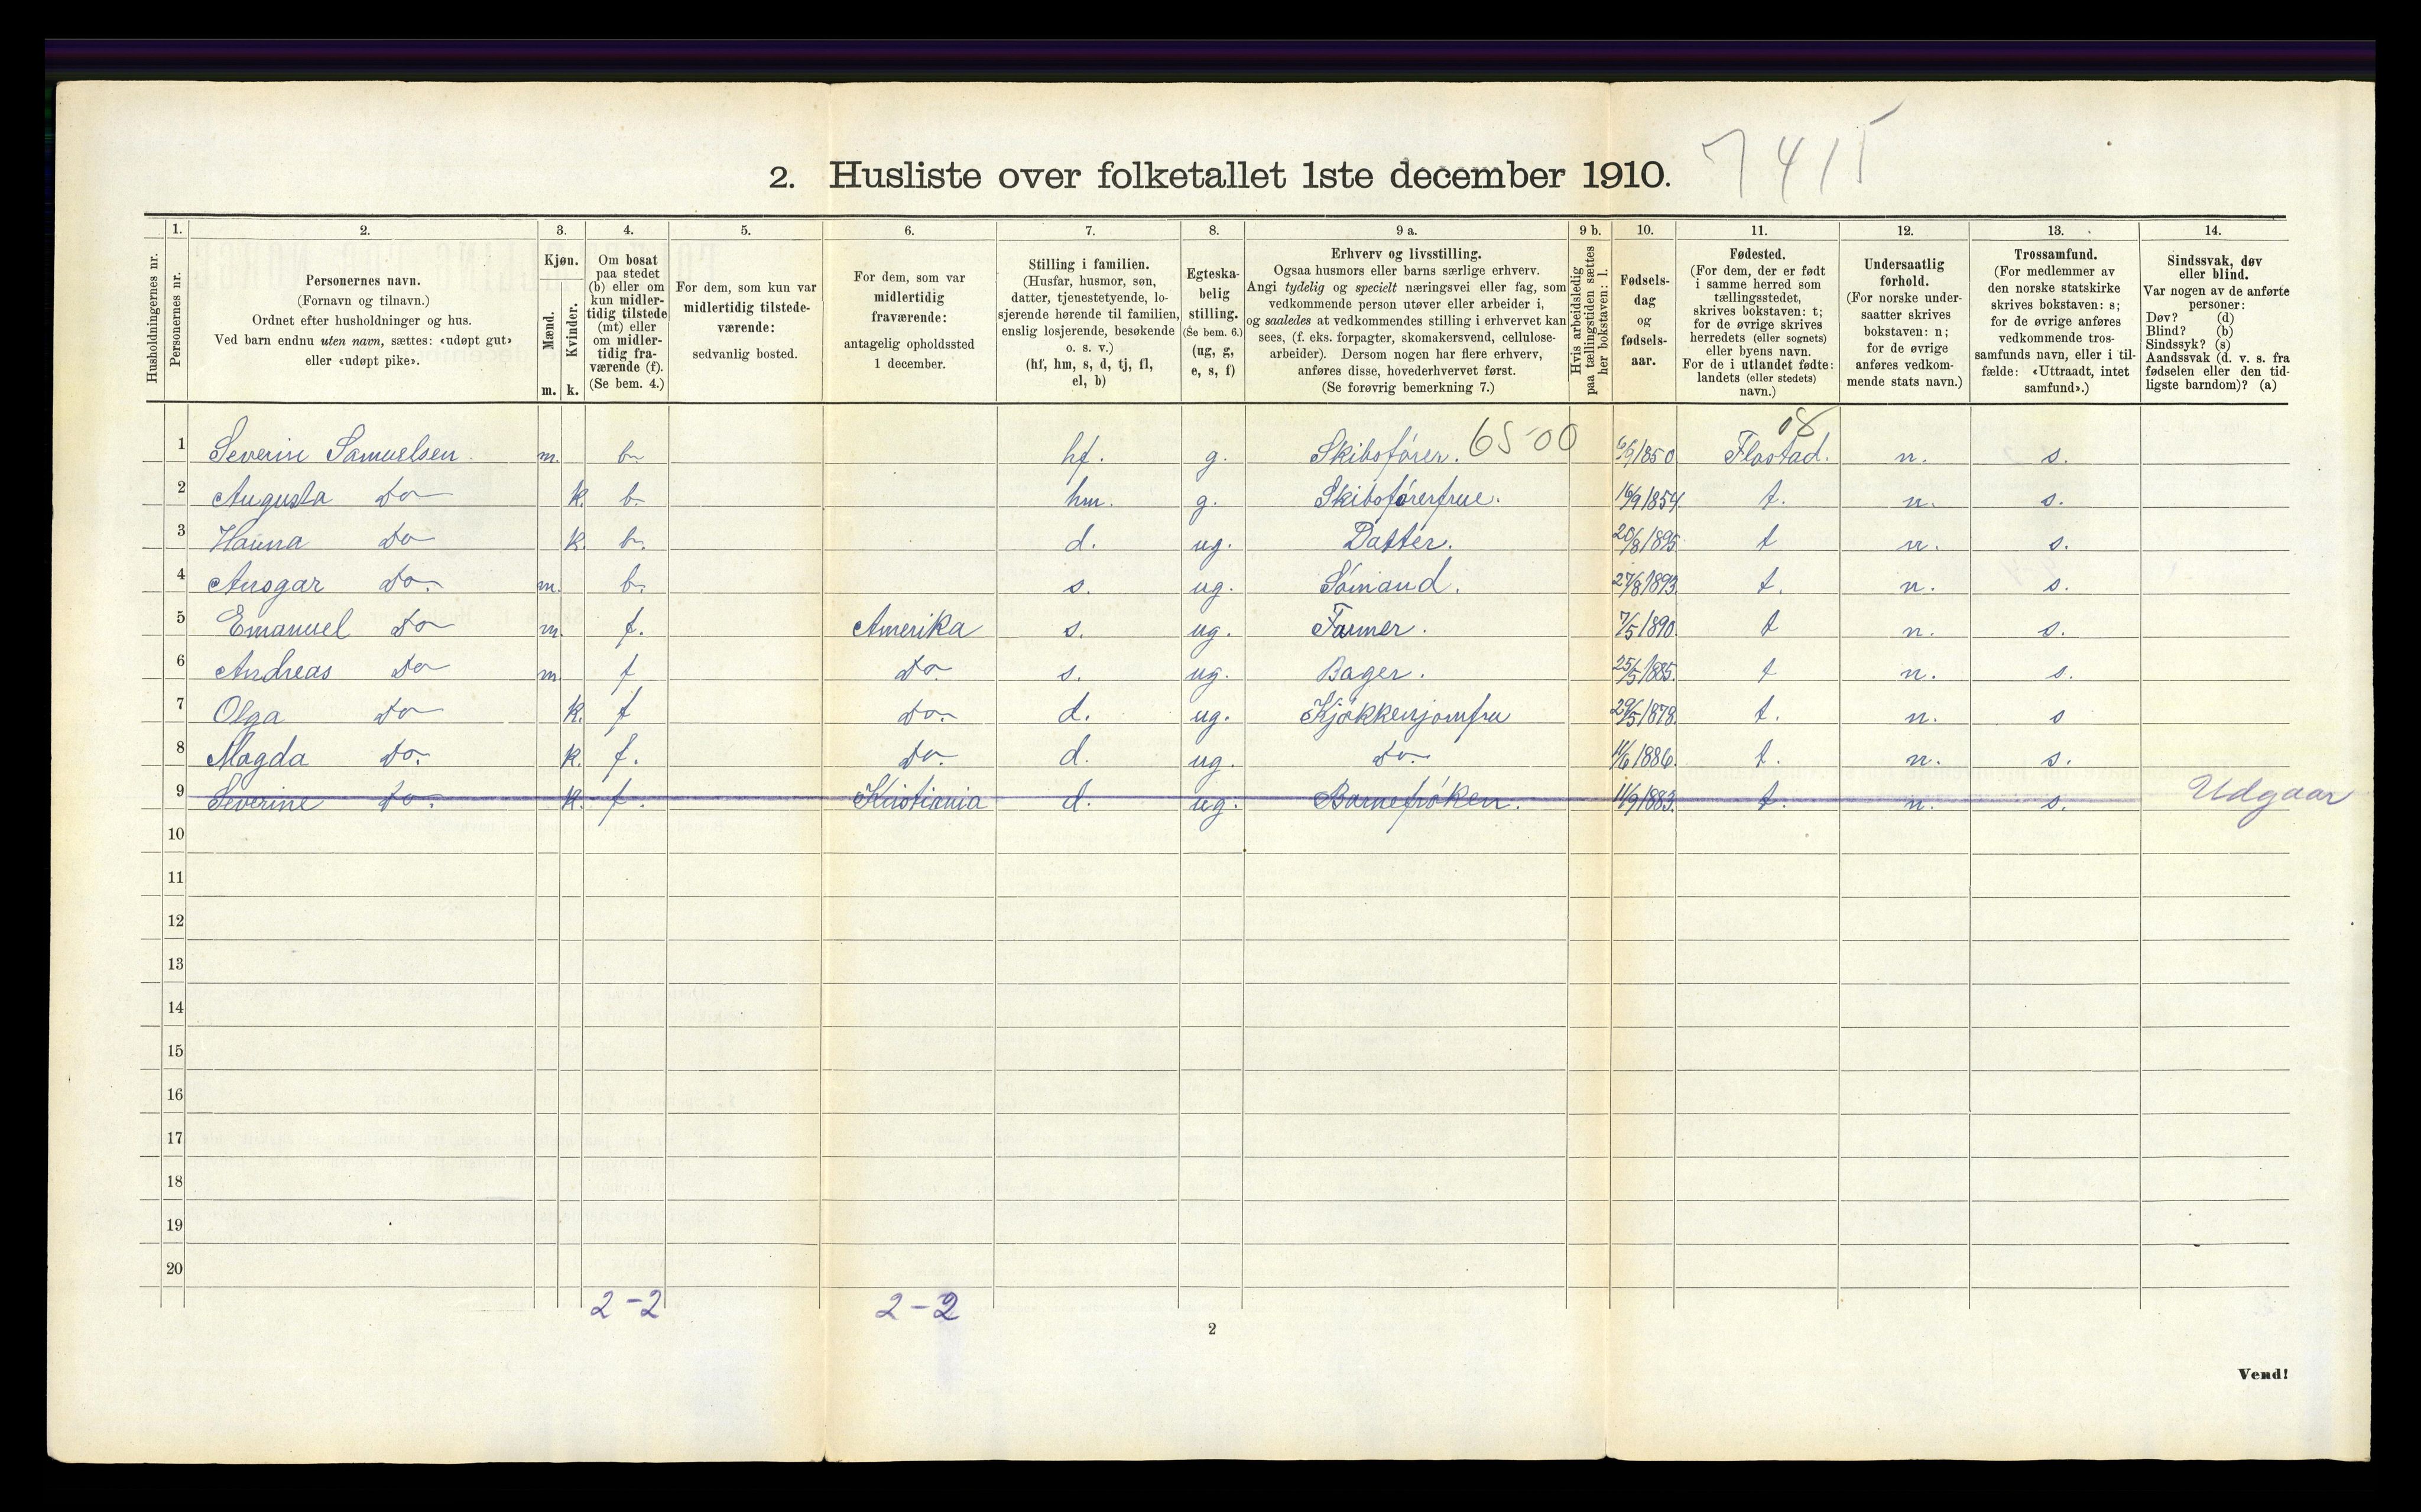 7415
2. Husliste over folketallet 1ste december 1910.
1. 2. 3. 4. 5. 6. 7. 8. 9 a. 9 b. 10. 11. 12. 13. 14.
Husholdningernes nr.
Personernes nr.
Personernes navn.
(Fornavn og tilnavn.)
Ordnet efter husholdninger og hus.
Ved barn endnu uten navn, sættes: «udøpt gut»
eller «udøpt pike».
Kjøn.
Mænd.
Kvinder.
m. k.
Om bosat
paa stedet
(b) eller om
kun midler-
tidig tilstede
(mt) eller
om midler-
tidig fra-
værende (f).
(Se bem. 4.)
For dem, som kun var
midlertidig tilstede-
værende:
sedvanlig bosted.
For dem, som var
midlertidig
fraværende:
antagelig opholdssted
1 december.
Stilling i familien.
(Husfar, husmor, søn,
datter, tjenestetyende, lo-
sjerende hørende til familien,
enslig losjerende, besøkende
o. s. v.)
(hf, hm, s, d, tj, fl,
el, b)
Egteska-
belig
stilling.
(Se bem. 6.)
(ug, g,
e, s, f)
Erhverv og livsstilling.
Ogsaa husmors eller barns særlige erhverv.
Angi tydelig og specielt næringsvei eller fag, som
vedkommende person utøver eller arbeider i,
og saaledes at vedkommendes stilling i erhvervet kan
sees, (f. eks. forpagter, skomakersvend, cellulose-
arbeider). Dersom nogen har flere erhverv,
anføres disse, hovederhvervet først.
(Se forøvrig bemerkning 7.)
Hvis arbeidsledig
paa tællingstiden sættes
her bokstaven: l.
Fødsels-
dag
og
fødsels-
aar.
Fødested.
(For dem, der er født
i samme herred som
tællingsstedet,
skrives bokstaven: t;
for de øvrige skrives
herredets (eller sognets)
eller byens navn.
For de i utlandet fødte:
landets (eller stedets)
navn.)
Undersaatlig
forhold.
(For norske under-
saatter skrives
bokstaven: n;
for de øvrige
anføres vedkom-
mende stats navn.)
Trossamfund.
(For medlemmer av
den norske statskirke
skrives bokstaven: s;
for de øvrige anføres
vedkommende tros-
samfunds navn, eller i til-
fælde: «Uttraadt, intet
samfund».)
Sindssvak, døv
eller blind.
Var nogen av de anførte
personer:
Døv? (d)
Blind? (b)
Sindssyk? (s)
Aandssvak (d. v. s. fra
fødselen eller den tid-
ligste barndom)? (a)
08
1 Severin Samuelsen. m. b. hf. g. Skibsfører. 65-00 1850 n. s.
2 Augusta do k. b. hm. g. Skibsførerfrue. 16/9 1854. t. n. s.
3 Hanna do k. b. d. ug. Datter. 20/8 1895 t n. s.
4 Ansgar do. m. b. s. ug. Sömand. 27/8 1893. t. n. s.
5 Emanuel do m. f. Amerika s. ug. Farmer. 7/5 1890. t n. s.
6 Andreas do m f do. s. ug. Bager. 25/5 1885. t n. s.
7 Olga do k. f do. d. ug. Kjøkkenjomfru 29/5 1878. t. n. s
8 Magda do. k. f. do. d. ug. do. 11/6 1886. t. n. s.
9 Severine do. k. f. Kristiania d. ug. Barnefrøken. 11/9 1883. t. n. s. Udgaar
10
11
12
13
14
15
16
17
18
19
20
2-2 2-2
2
Vend!